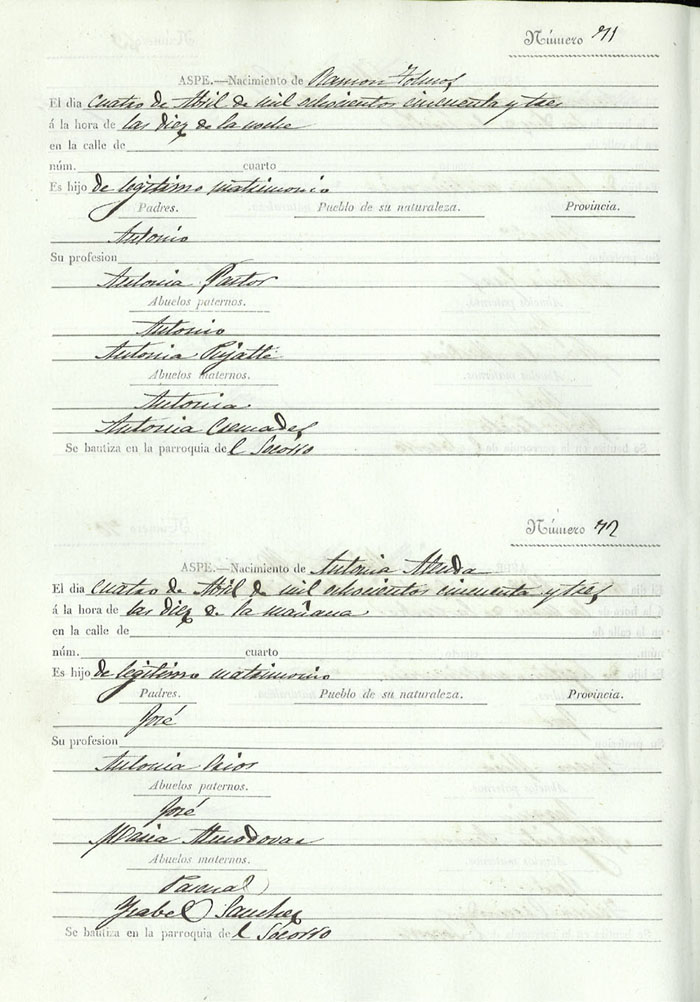 Número 71
ASPE.—Nacimiento de Ramon
El dia cuatro de Abril de mil ochocientos cincuenta y tres
á la hora de las diez de la noche
en la calle de
núm. cuarto
Es hijo de legitimo matrimonio
Padres. Pueblo de su naturaleza. Provincia.
Antonio
Su profesion
Antonia Pastor
Abuelos paternos.
Antonio
Antonia Pujalte
Abuelos maternos.
Antonia
Antonia Cremades
Se bautiza en la parroquia de l Socorro
Número 72
ASPE.—Nacimiento de Antonia
El dia cuatro de Abril de mil ochocientos cincuenta y tres
á la hora de las diez de la mañana
en la calle de
núm. cuarto
Es hijo de legitimo matrimonio
Padres. Pueblo de su naturaleza. Provincia.
José
Su profesion
Antonia
Abuelos paternos.
José
Maria Almodovar
Abuelos maternos.
Pascual
Ysabel Sanchez
Se bautiza en la parroquia de l Socorro